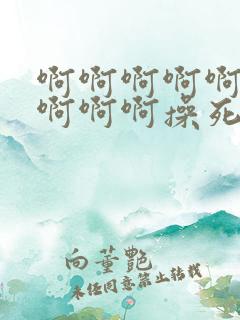 啊啊啊啊啊
啊啊啊操死
向董艳
未经同意禁止转载